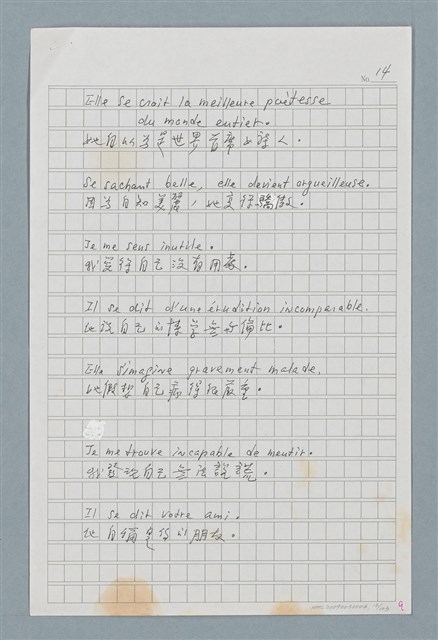 No. 14
Elle se croit la meilleure poétesse
du monde entier.
她自以為是世界首席女詩人。
Se sachant belle, elle devient orgueilleuse.
因為自知美麗，她變得驕傲。
Je me sens inutile.
我覺得自己沒有用處。
Il se dit d'une érudition incomparable.
他說自己的博學無可倫比。
Elle s'imagine gravement malade.
她假想自己病得很嚴重。
Je me trouve incapable de mentir.
我發現自己無法說謊。
Il se dit votre ami.
他自稱是你的朋友。
9